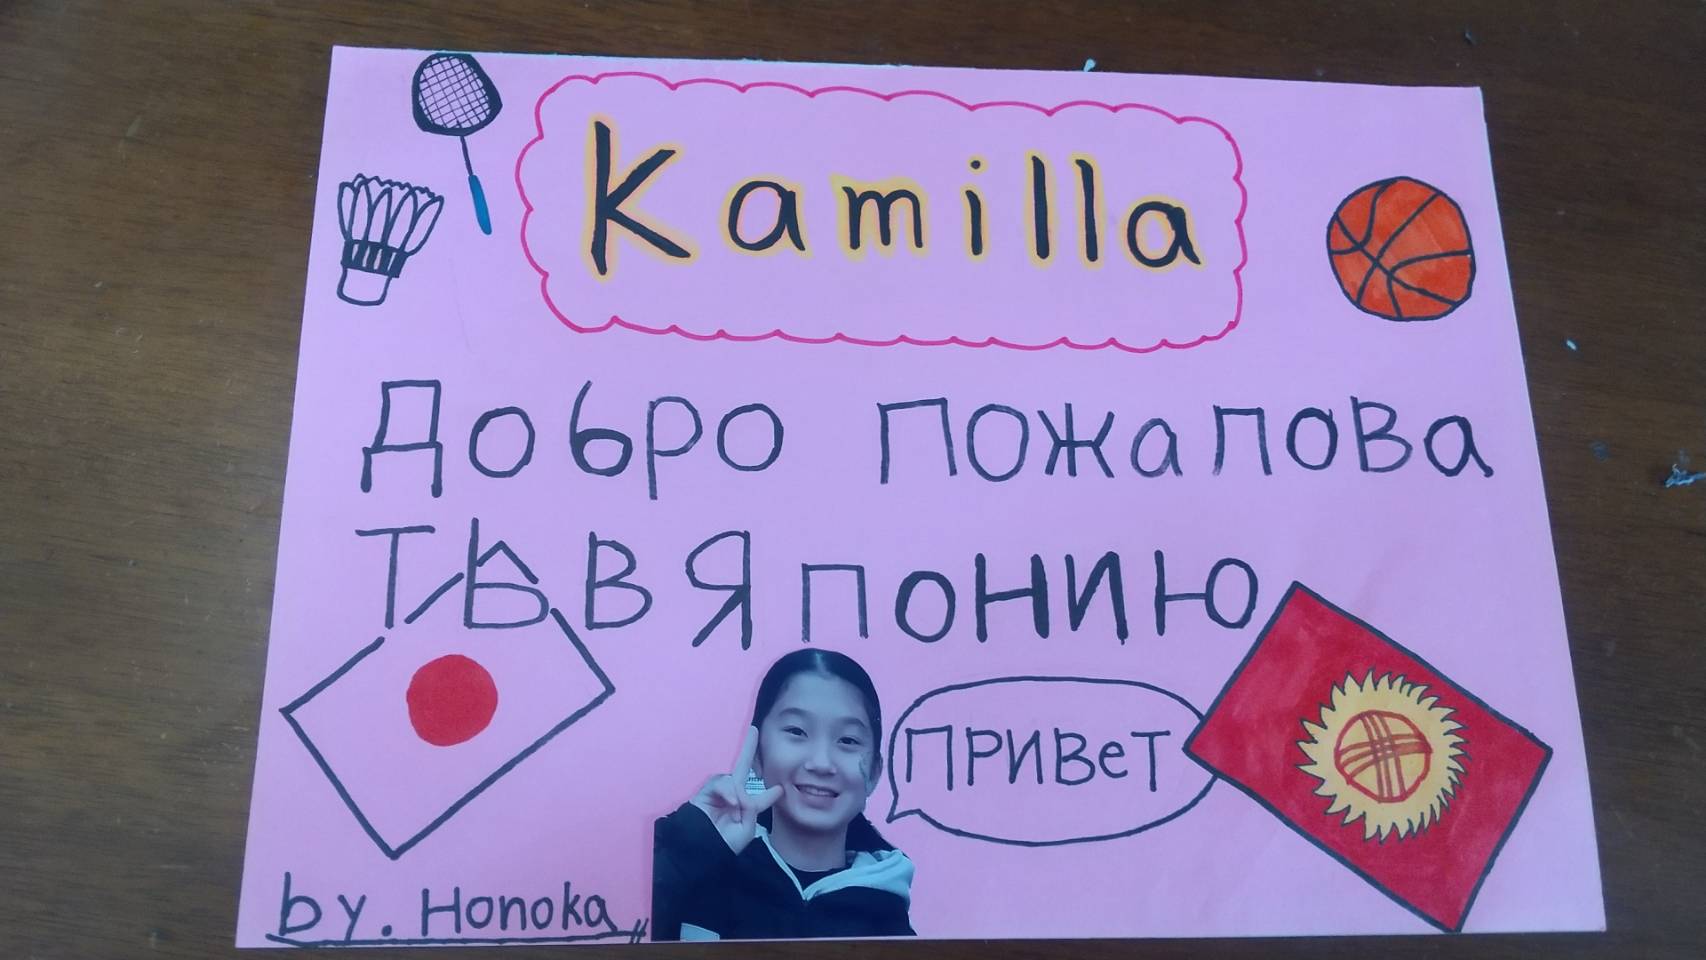 Kamilla
Добро пожапова
ТЬВЯпонию
привет
by. Honoka